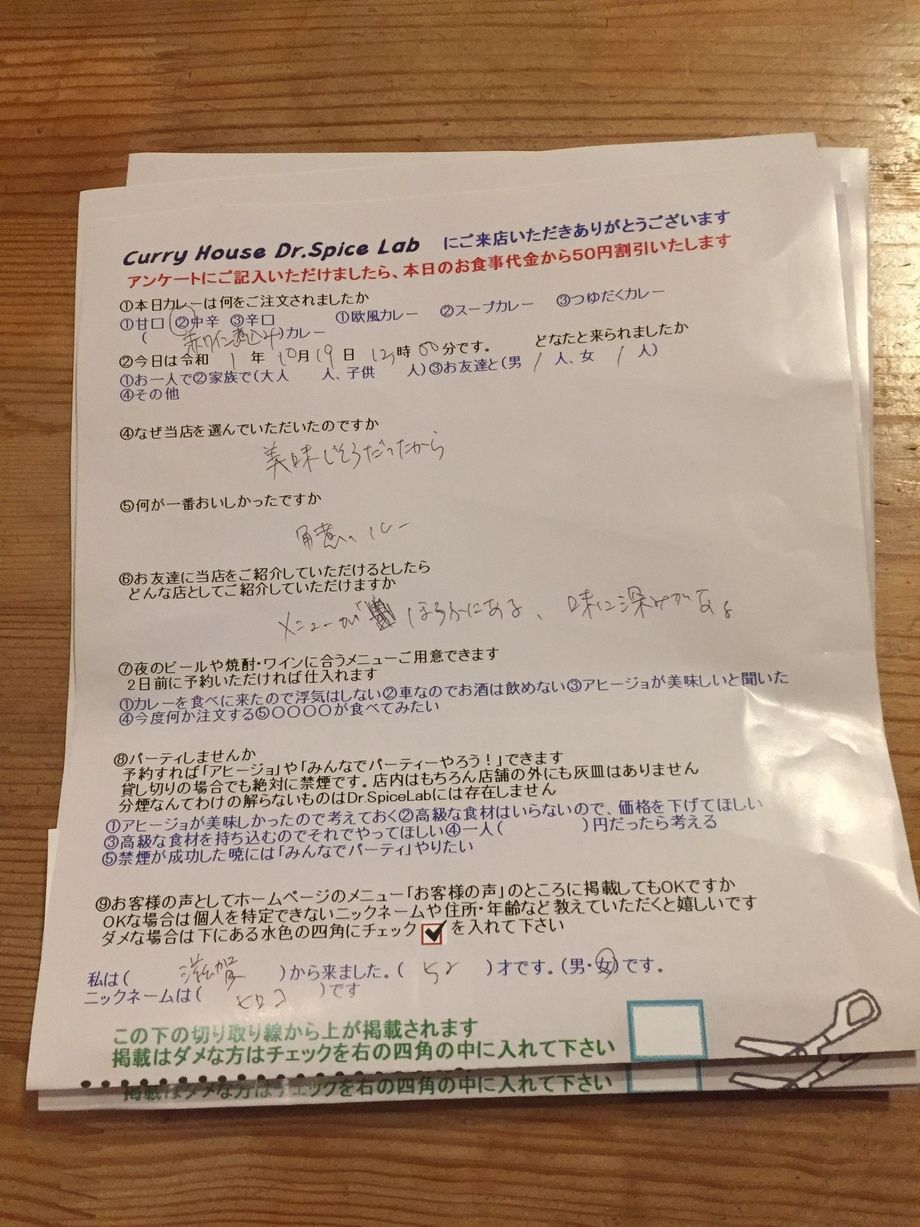 Curry House Dr.Spice Lab にご来店いただきありがとうございます
アンケートにご記入いただけましたら、本日のお食事代金から50円割引いたします
①本日カレーは何をご注文されましたか
①甘口 ②中辛 ③辛口 ①欧風カレー ②スープカレー ③つゆだくカレー
( )カレー
②今日は令和 1 年 10月19日 12時00分です。 どなたと来られましたか
①お一人で②家族で(大人 人、子供 人)③お友達と(男 1 人、女 1 人)
④その他
④なぜ当店を選んでいただいたのですか
美味しそうだったから
⑤何が一番おいしかったですか
角煮、ルー
⑥お友達に当店をご紹介していただけるとしたら
どんな店としてご紹介していただけますか
メニューが ほうふにある、味に深みがある
⑦夜のビールや焼酎・ワインに合うメニューご用意できます
2日前に予約いただければ仕入れます
①カレーを食べに来たので浮気はしない②車なのでお酒は飲めない③アヒージョが美味しいと聞いた
④今度何か注文する⑤〇〇〇〇が食べてみたい
⑧パーティしませんか
予約すれば「アヒージョ」や「みんなでパーティーやろう!」できます
貸し切りの場合でも絶対に禁煙です。店内はもちろん店舗の外にも灰皿はありません
分煙なんてわけの解らないものはDr.SpiceLabには存在しません
①アヒージョが美味しかったので考えておく②高級な食材はいらないので、価格を下げてほしい
③高級な食材を持ち込むのでそれでやってほしい④一人( )円だったら考える
⑤禁煙が成功した暁には「みんなでパーティ」やりたい
⑨お客様の声としてホームページのメニュー「お客様の声」のところに掲載してもOKですか
OKな場合は個人を特定できないニックネームや住所・年齢など教えていただくと嬉しいです
ダメな場合は下にある水色の四角にチェック を入れて下さい
私は( 滋賀 )から来ました。( 52 )才です。(男・女)です。
ニックネームは( )です
この下の切り取り線から上が掲載されます
掲載はダメな方はチェックを右の四角の中に入れて下さい
掲載はダメな方はチェックを右の四角の中に入れて下さい